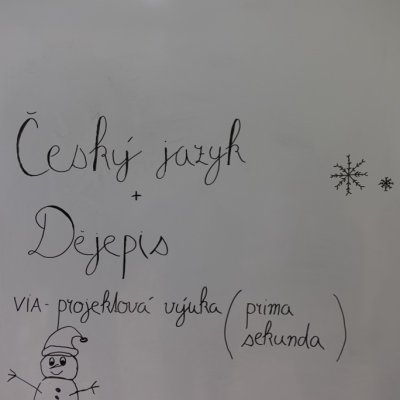 Český jazyk
+
Dějepis
VIA - projektová výuka (prima
sekunda)